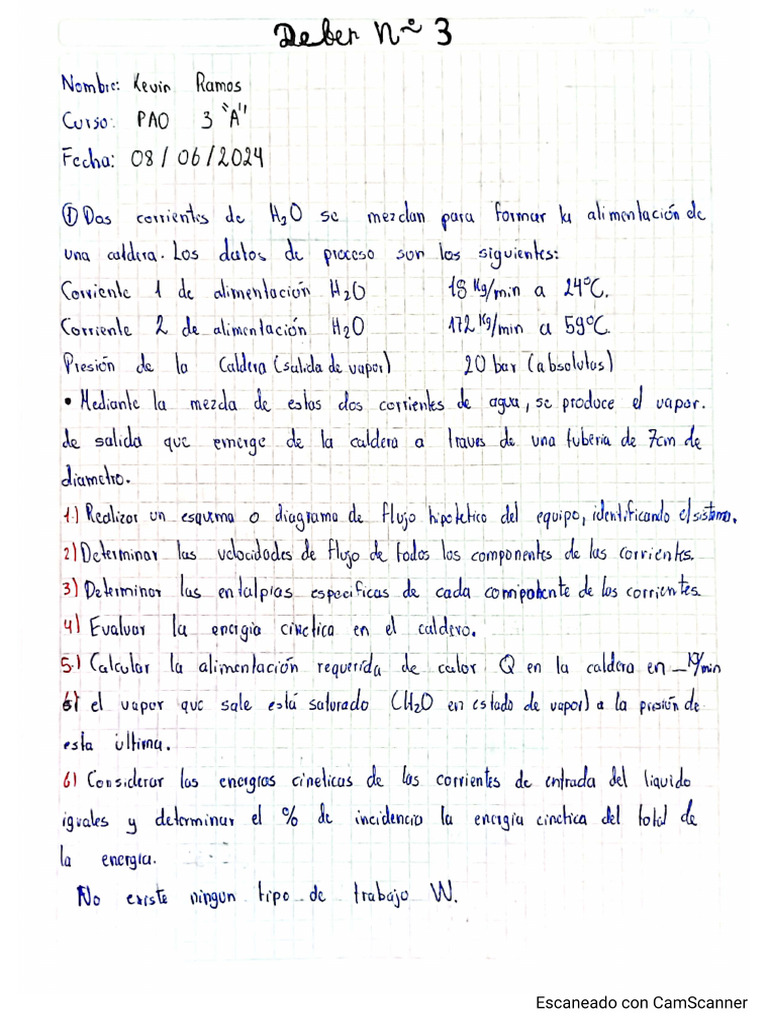 Deber N° 3
Nombre: Kevin Ramos
Curso: PAO 3 "A"
Fecha: 08/06/2024
① Dos corrientes de H₂O se mezclan para formar la alimentación de
una caldera. Los datos de proceso son los siguientes:
Corriente 1 de alimentación H₂O 18 Kg/min a 24°C.
Corriente 2 de alimentación H₂O 172 Kg/min a 59°C.
Presión de la Caldera (salida de vapor) 20 bar (absolutos)
• Mediante la mezcla de estas dos corrientes de agua, se produce el vapor.
de salida que emerge de la caldera a traves de una tuberia de 7cm de
diametro.
1.) Realizar un esquema o diagrama de flujo hipotetico del equipo, identificando el sistema.
2) Determinar las velocidades de flujo de todos los componentes de las corrientes.
3) Determinar las entalpias especificas de cada componente de los corrientes
4) Evaluar la energia cinetica en el caldero.
5.) Calcular la alimentación requerida de calor Q en la caldera en _ KJ/min
si el vapor que sale está saturado (H₂O en estado de vapor) a la presión de
esta ultima.
6) Considerar las energias cineticas de las corrientes de entrada del liquido
iguales y determinar el % de incidencia la energia cinetica del total de
la energia.
No existe ningun tipo de trabajo W.
Escaneado con CamScanner